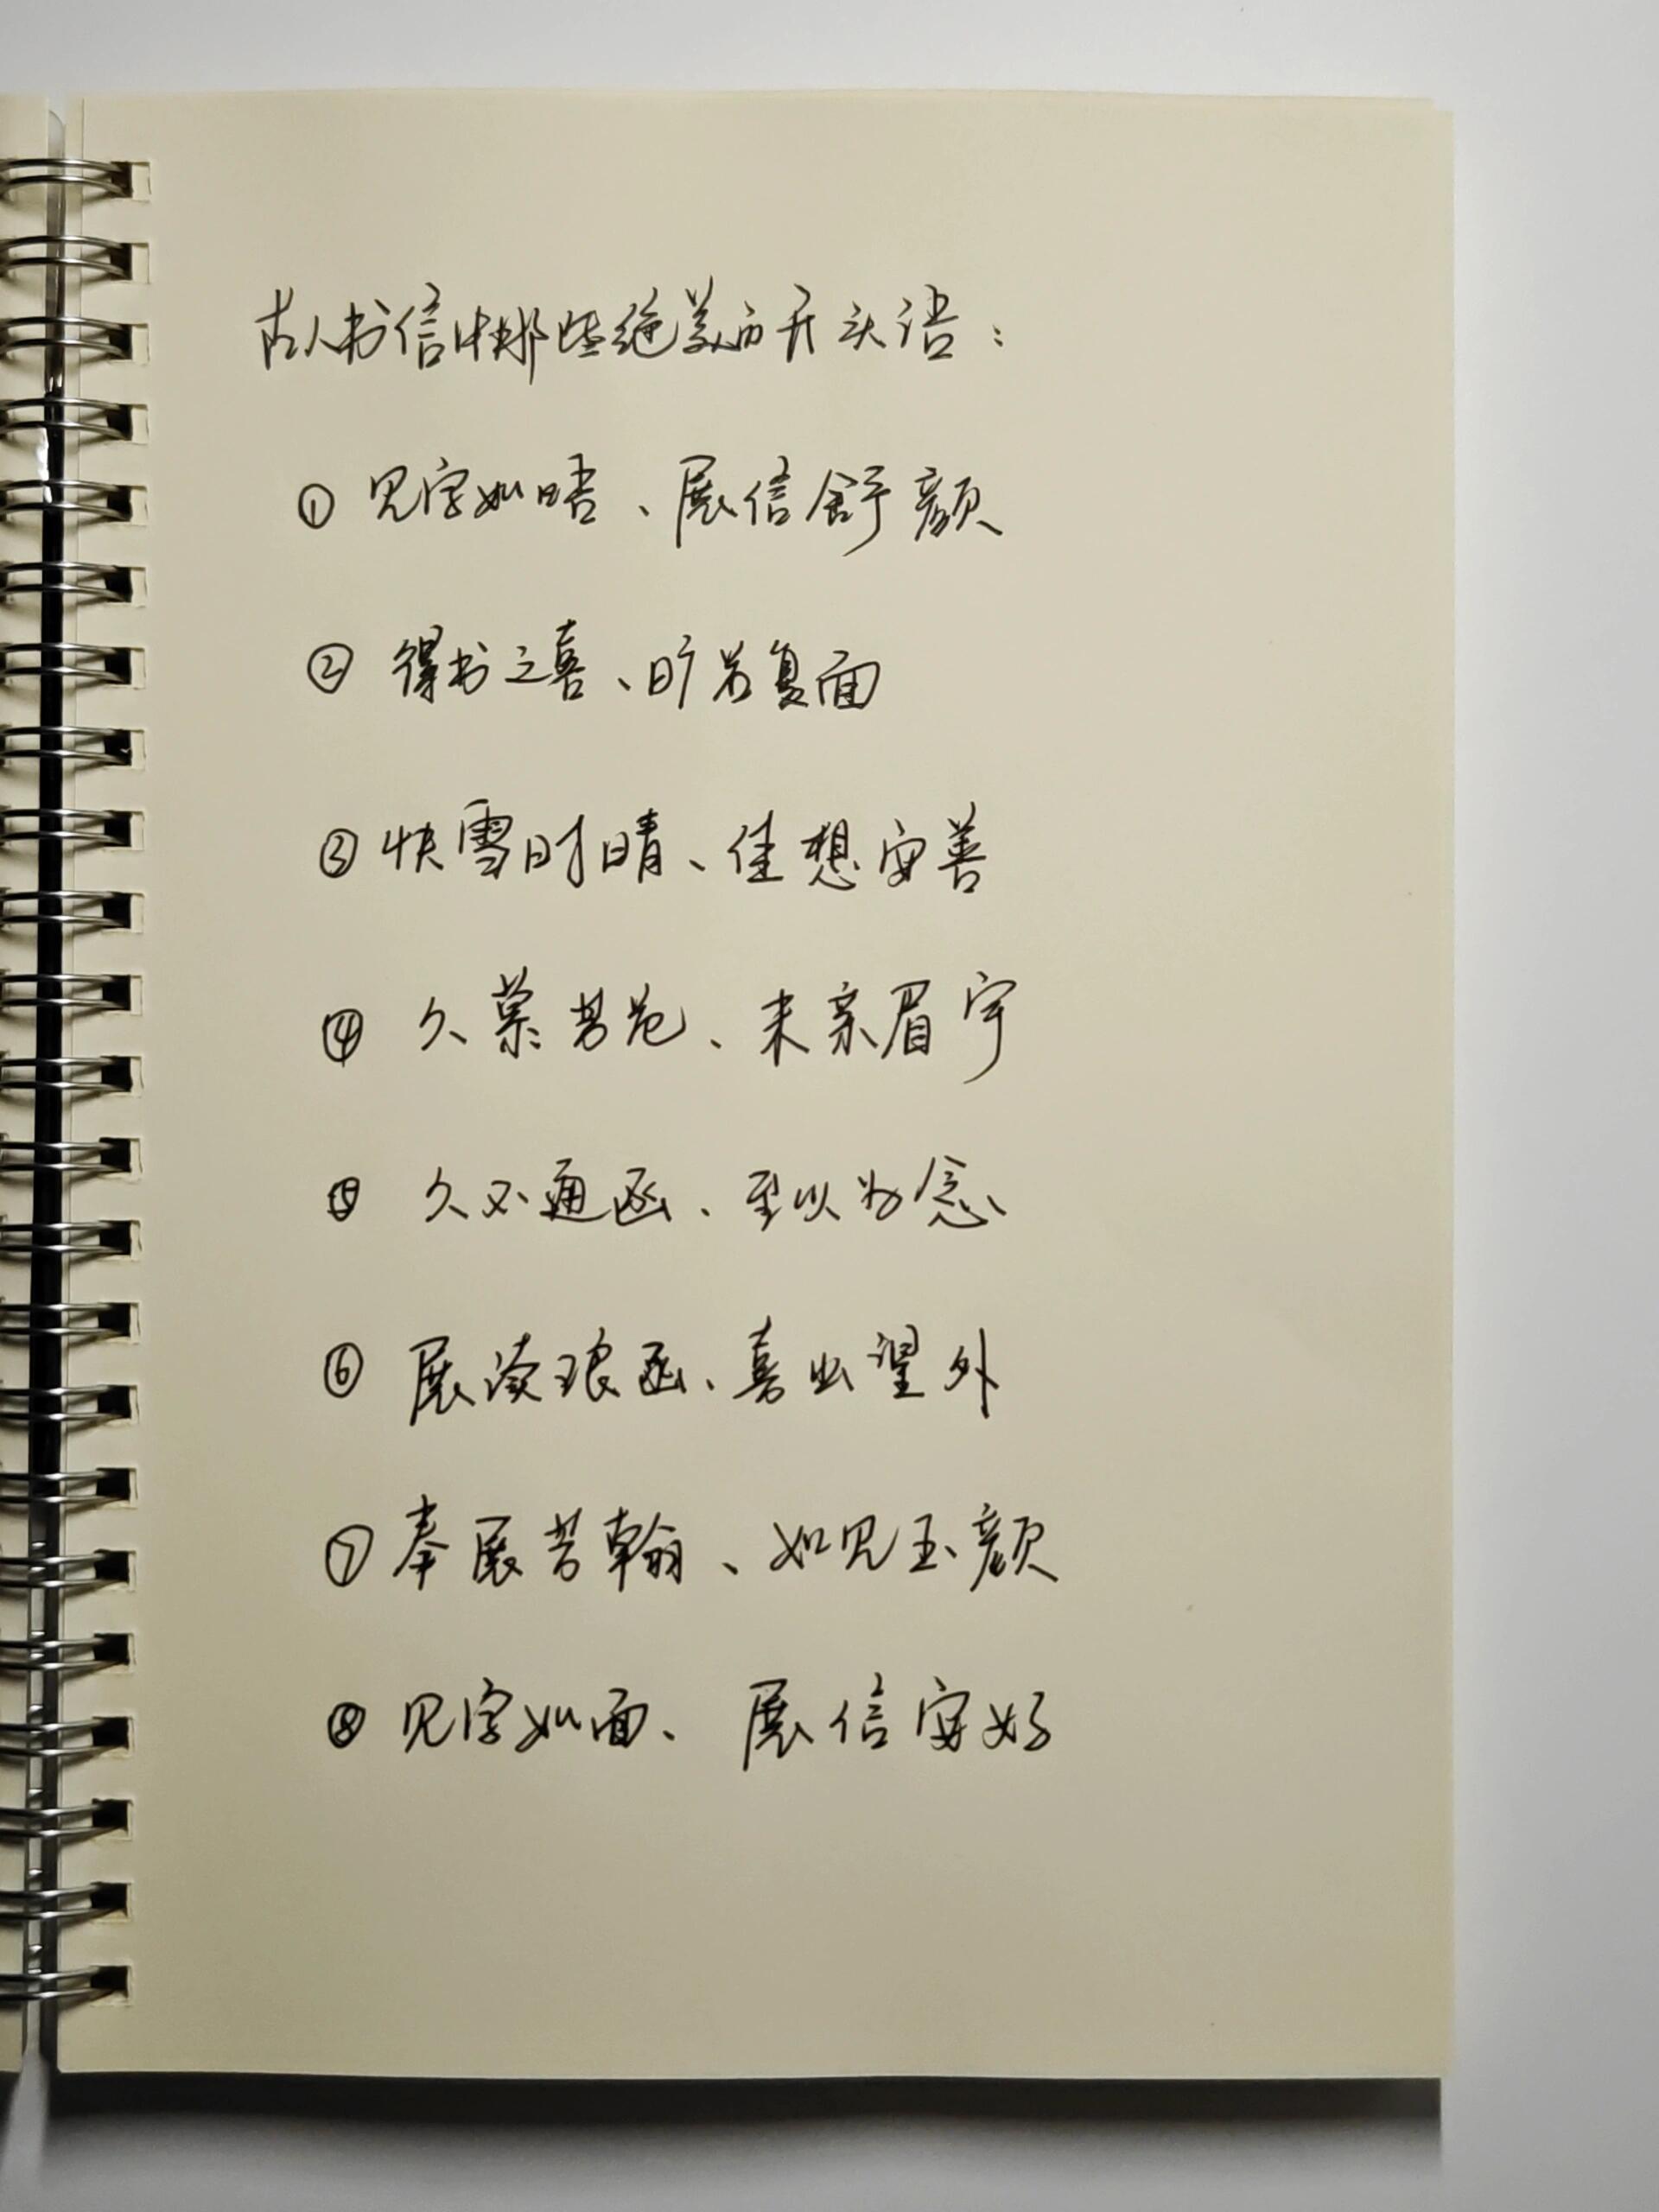 古人书信中那些绝美的开头语：
① 见字如晤、展信舒颜
② 得书之喜、旷若复面
③ 快雪时晴、佳想安善
④ 久慕芳范、未亲眉宇
⑤ 久不通函、至以为念
⑥ 展读琅函、喜出望外
⑦ 奉展芳翰、如见玉颜
⑧ 见字如面、展信安好